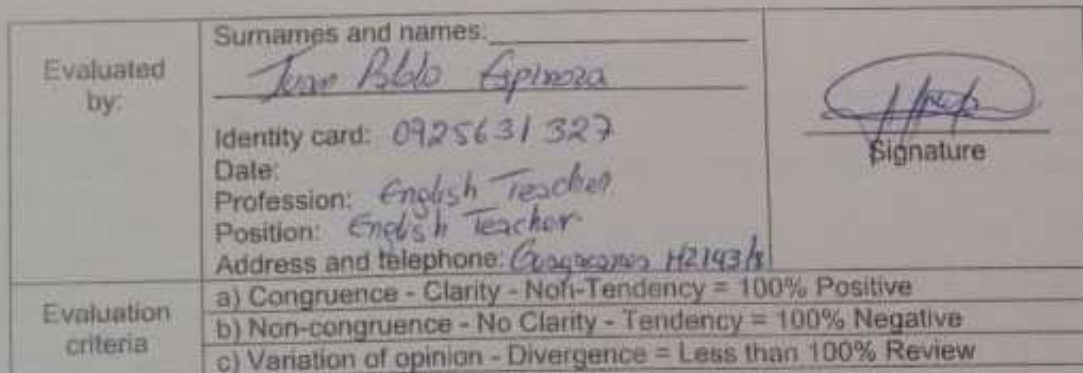 Evaluated
by:
Surnames and names:
Juan Pablo Espinoza
Identity card: 0925631327
Date:
Profession: English Teacher
Position: English Teacher
Address and telephone:
Signature
Evaluation
criteria
a) Congruence - Clarity - Non-Tendency = 100% Positive
b) Non-congruence - No Clarity - Tendency = 100% Negative
c) Variation of opinion - Divergence = Less than 100% Review